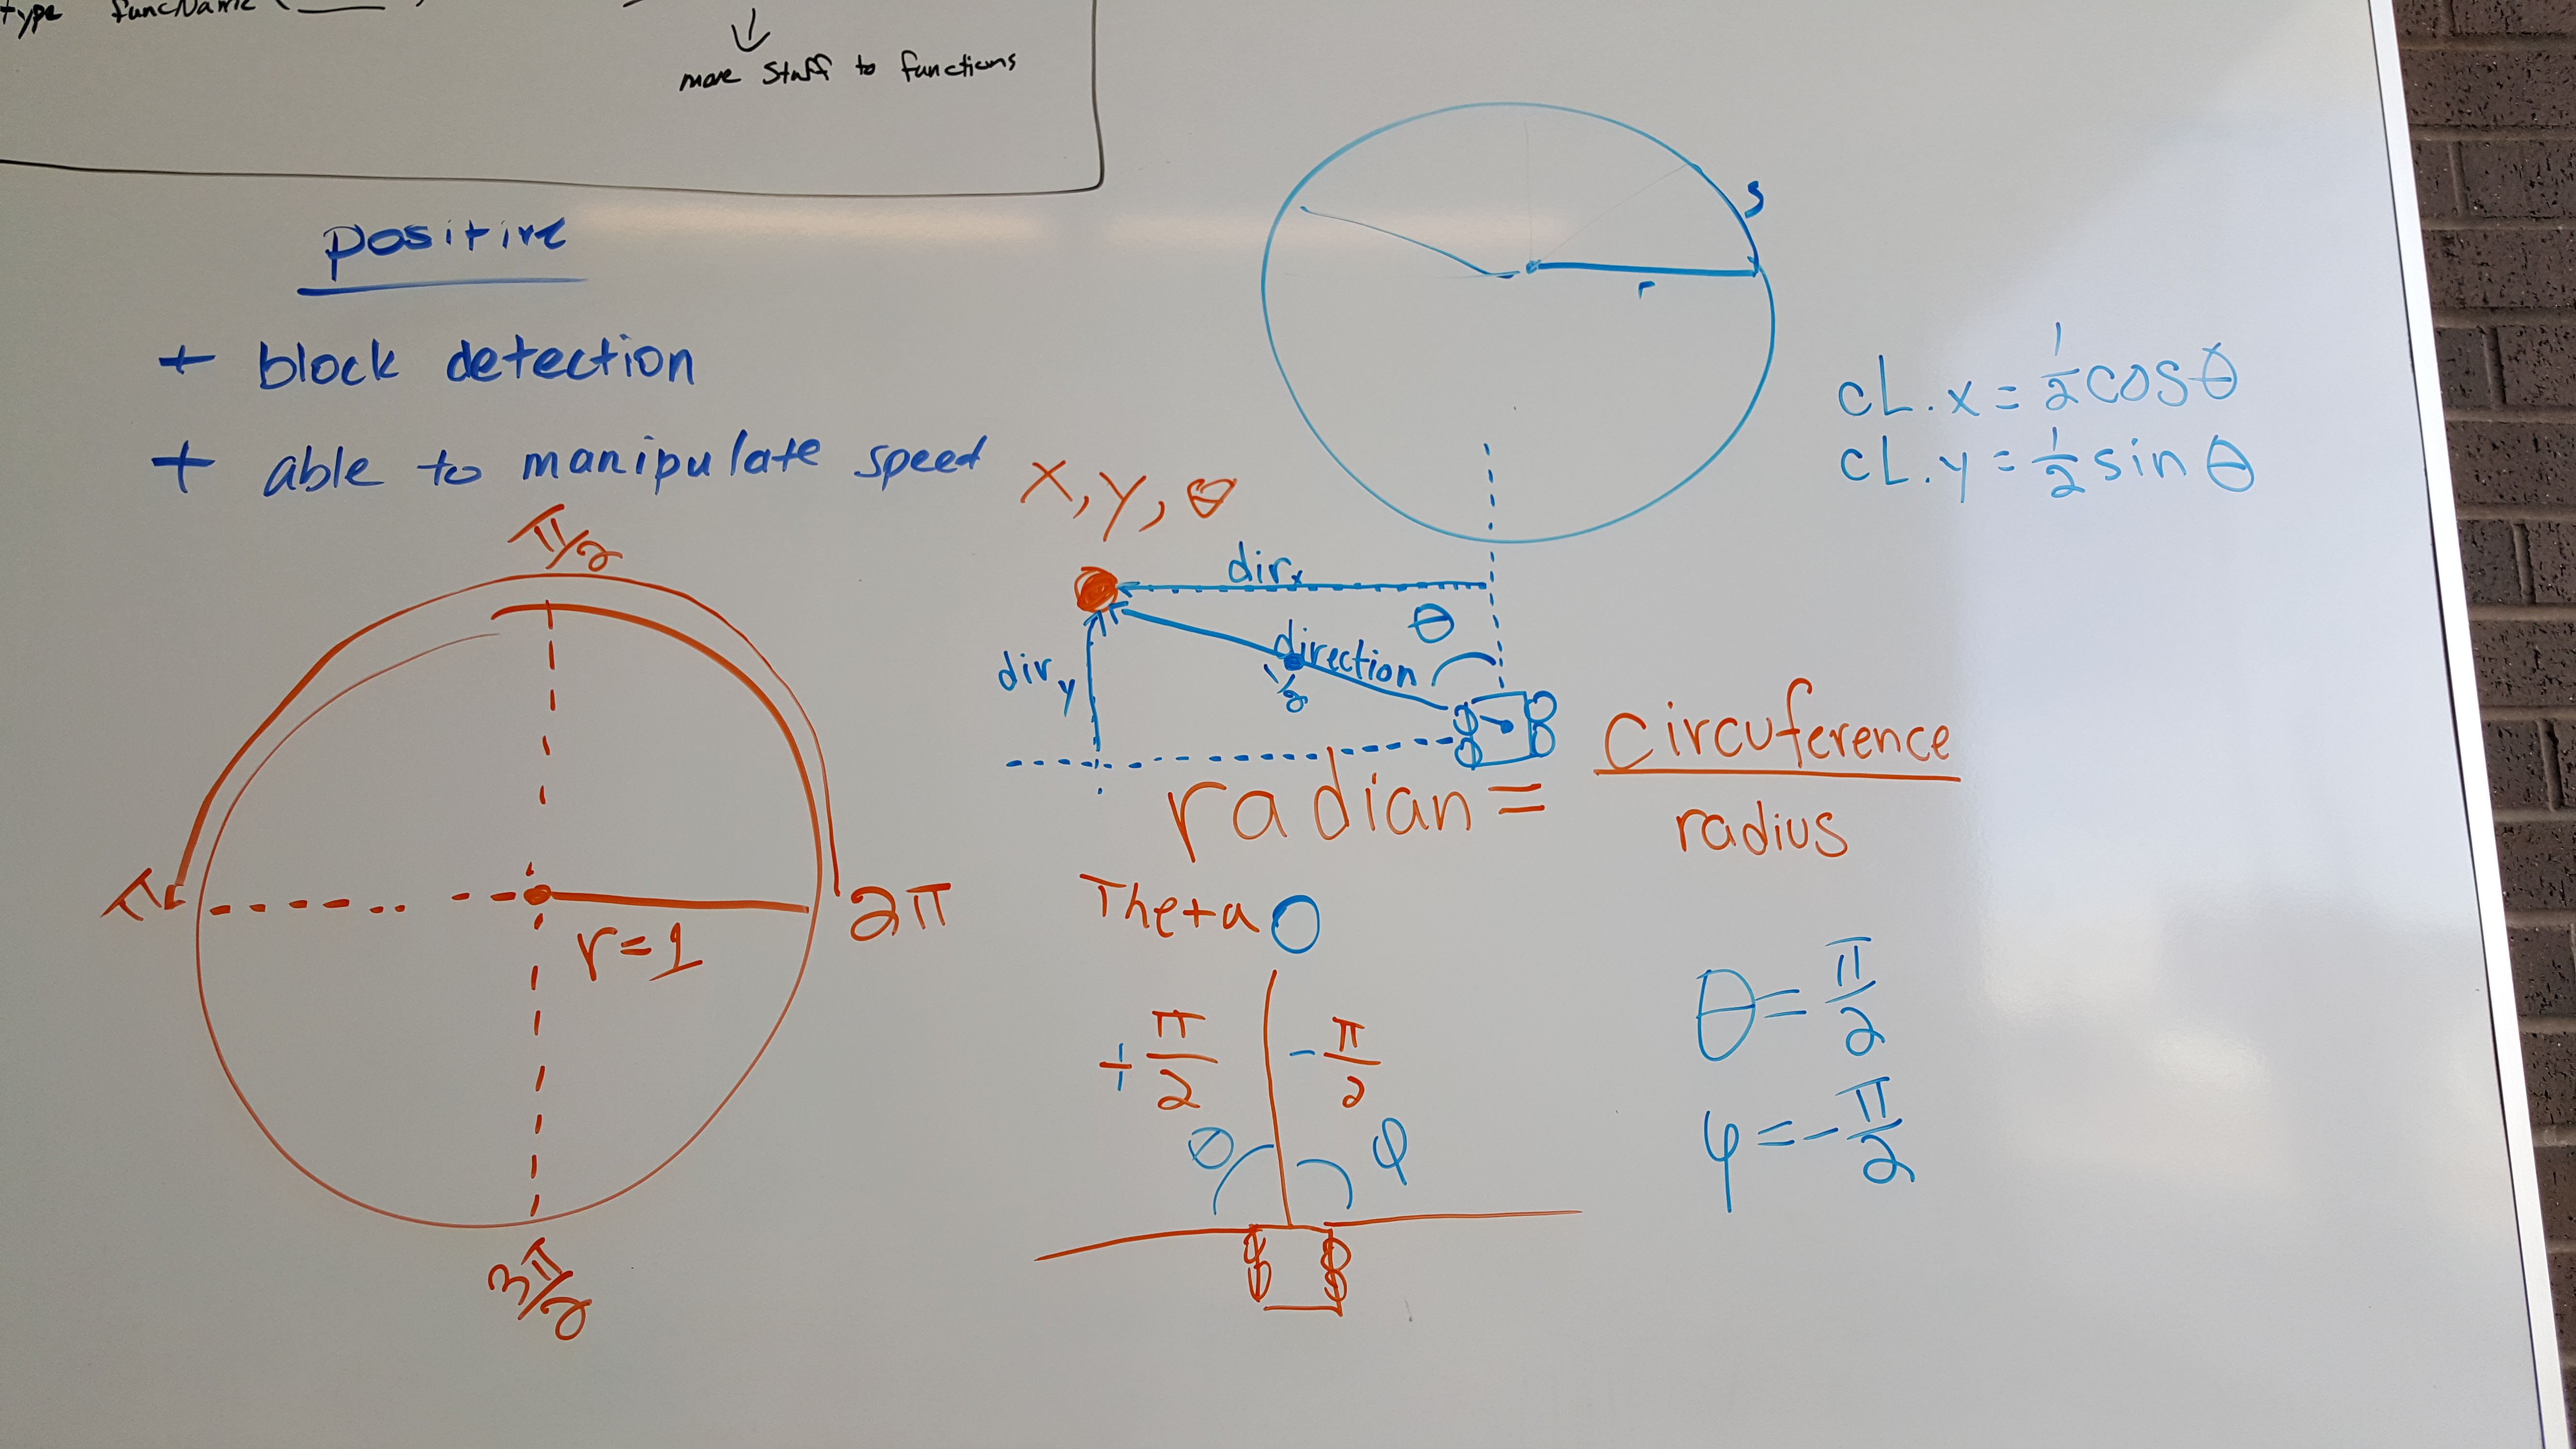 type funcName (____)
more Staff to functions
positive
+ block detection
+ able to manipulate speed
s
r
cL.x = 1/2 cos θ
cL.y = 1/2 sin θ
x, y, θ
dirx
θ
direction
1/2
diry
π/2
π
2π
r=1
3π/2
radian = circuference / radius
Theta O
+ π/2
- π/2
θ
φ
θ = π/2
φ = - π/2